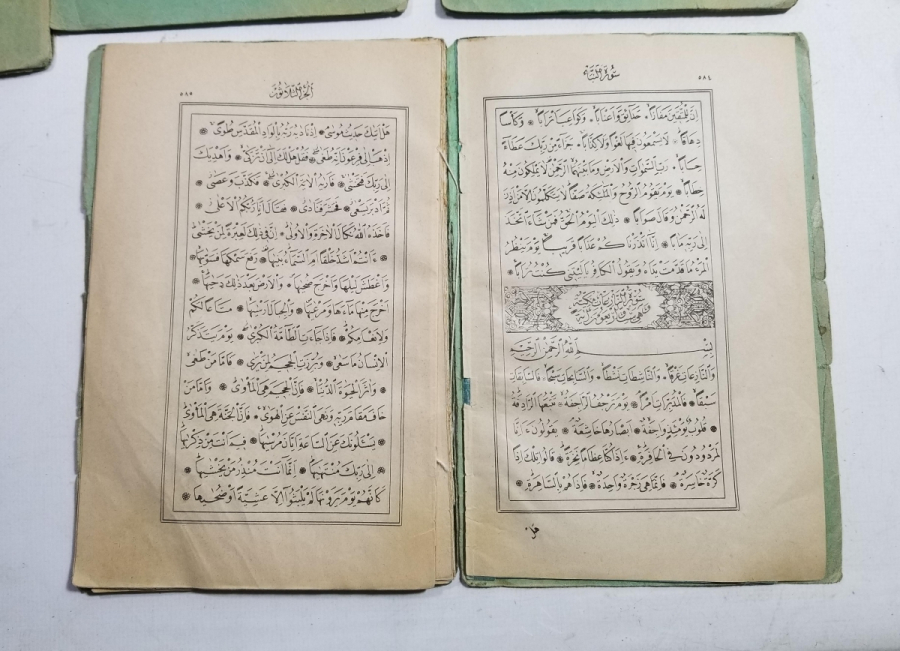 سُورَةُ النَّبَإِ ٥٨٤
اِنَّ لِلْمُتَّقِينَ مَفَازًا ۞ حَدَائِقَ وَاَعْنَابًا ۞ وَكَوَاعِبَ اَتْرَابًا ۞ وَكَاْسًا
دِهَاقًا ۞ لَا يَسْمَعُونَ فِيهَا لَغْوًا وَلَا كِذَّابًا ۞ جَزَاءً مِنْ رَبِّكَ عَطَاءً
حِسَابًا ۞ رَبِّ السَّمٰوَاتِ وَالْاَرْضِ وَمَا بَيْنَهُمَا الرَّحْمٰنِ لَا يَمْلِكُونَ مِنْهُ
خِطَابًا ۞ يَوْمَ يَقُومُ الرُّوحُ وَالْمَلٰئِكَةُ صَفًّا لَا يَتَكَلَّمُونَ اِلَّا مَنْ اَذِنَ
لَهُ الرَّحْمٰنُ وَقَالَ صَوَابًا ۞ ذٰلِكَ الْيَوْمُ الْحَقُّ فَمَنْ شَاءَ اتَّخَذَ
اِلٰى رَبِّهِ مَاٰبًا ۞ اِنَّا اَنْذَرْنَاكُمْ عَذَابًا قَرِيبًا يَوْمَ يَنْظُرُ
الْمَرْءُ مَا قَدَّمَتْ يَدَاهُ وَيَقُولُ الْكَافِرُ يَا لَيْتَنِي كُنْتُ تُرَابًا
سُورَةُ النَّازِعَاتِ مَكِّيَّةٌ
وَهِيَ سِتٌّ وَاَرْبَعُونَ اٰيَةً
بِسْمِ اللّٰهِ الرَّحْمٰنِ الرَّحِيمِ
وَالنَّازِعَاتِ غَرْقًا ۞ وَالنَّاشِطَاتِ نَشْطًا ۞ وَالسَّابِحَاتِ سَبْحًا ۞ فَالسَّابِقَاتِ
سَبْقًا ۞ فَالْمُدَبِّرَاتِ اَمْرًا ۞ يَوْمَ تَرْجُفُ الرَّاجِفَةُ ۞ تَتْبَعُهَا الرَّادِفَةُ
۞ قُلُوبٌ يَوْمَئِذٍ وَاجِفَةٌ ۞ اَبْصَارُهَا خَاشِعَةٌ ۞ يَقُولُونَ ءَاِنَّا
لَمَرْدُودُونَ فِي الْحَافِرَةِ ۞ ءَاِذَا كُنَّا عِظَامًا نَخِرَةً ۞ قَالُوا تِلْكَ اِذًا
كَرَّةٌ خَاسِرَةٌ ۞ فَاِنَّمَا هِيَ زَجْرَةٌ وَاحِدَةٌ ۞ فَاِذَا هُمْ بِالسَّاهِرَةِ ۞
هَلْ
اَلْجُزْءُ الثَّلَاثُونَ ٥٨٥
هَلْ اَتٰيكَ حَدِيثُ مُوسٰى ۞ اِذْ نَادٰيهُ رَبُّهُ بِالْوَادِ الْمُقَدَّسِ طُوًى ۞
اِذْهَبْ اِلٰى فِرْعَوْنَ اِنَّهُ طَغٰى ۞ فَقُلْ هَلْ لَكَ اِلٰى اَنْ تَزَكّٰى ۞ وَاَهْدِيَكَ
اِلٰى رَبِّكَ فَتَخْشٰى ۞ فَاَرٰيهُ الْاٰيَةَ الْكُبْرٰى ۞ فَكَذَّبَ وَعَصٰى ۞
ثُمَّ اَدْبَرَ يَسْعٰى ۞ فَحَشَرَ فَنَادٰى ۞ فَقَالَ اَنَا رَبُّكُمُ الْاَعْلٰى ۞
فَاَخَذَهُ اللّٰهُ نَكَالَ الْاٰخِرَةِ وَالْاُولٰى ۞ اِنَّ فِي ذٰلِكَ لَعِبْرَةً لِمَنْ يَخْشٰى
۞ ءَاَنْتُمْ اَشَدُّ خَلْقًا اَمِ السَّمَاءُ بَنٰيهَا ۞ رَفَعَ سَمْكَهَا فَسَوّٰيهَا ۞
وَاَغْطَشَ لَيْلَهَا وَاَخْرَجَ ضُحٰيهَا ۞ وَالْاَرْضَ بَعْدَ ذٰلِكَ دَحٰيهَا ۞
اَخْرَجَ مِنْهَا مَاءَهَا وَمَرْعٰيهَا ۞ وَالْجِبَالَ اَرْسٰيهَا ۞ مَتَاعًا لَكُمْ
وَلِاَنْعَامِكُمْ ۞ فَاِذَا جَاءَتِ الطَّامَّةُ الْكُبْرٰى ۞ يَوْمَ يَتَذَكَّرُ
الْاِنْسَانُ مَا سَعٰى ۞ وَبُرِّزَتِ الْجَحِيمُ لِمَنْ يَرٰى ۞ فَاَمَّا مَنْ طَغٰى
۞ وَاٰثَرَ الْحَيٰوةَ الدُّنْيَا ۞ فَاِنَّ الْجَحِيمَ هِيَ الْمَاْوٰى ۞ وَاَمَّا مَنْ
خَافَ مَقَامَ رَبِّهِ وَنَهَى النَّفْسَ عَنِ الْهَوٰى ۞ فَاِنَّ الْجَنَّةَ هِيَ الْمَاْوٰى
يَسْئَلُونَكَ عَنِ السَّاعَةِ اَيَّانَ مُرْسٰيهَا ۞ فِيمَ اَنْتَ مِنْ ذِكْرٰيهَا
۞ اِلٰى رَبِّكَ مُنْتَهٰيهَا ۞ اِنَّمَا اَنْتَ مُنْذِرُ مَنْ يَخْشٰيهَا ۞
كَاَنَّهُمْ يَوْمَ يَرَوْنَهَا لَمْ يَلْبَثُوا اِلَّا عَشِيَّةً اَوْ ضُحٰيهَا ۞